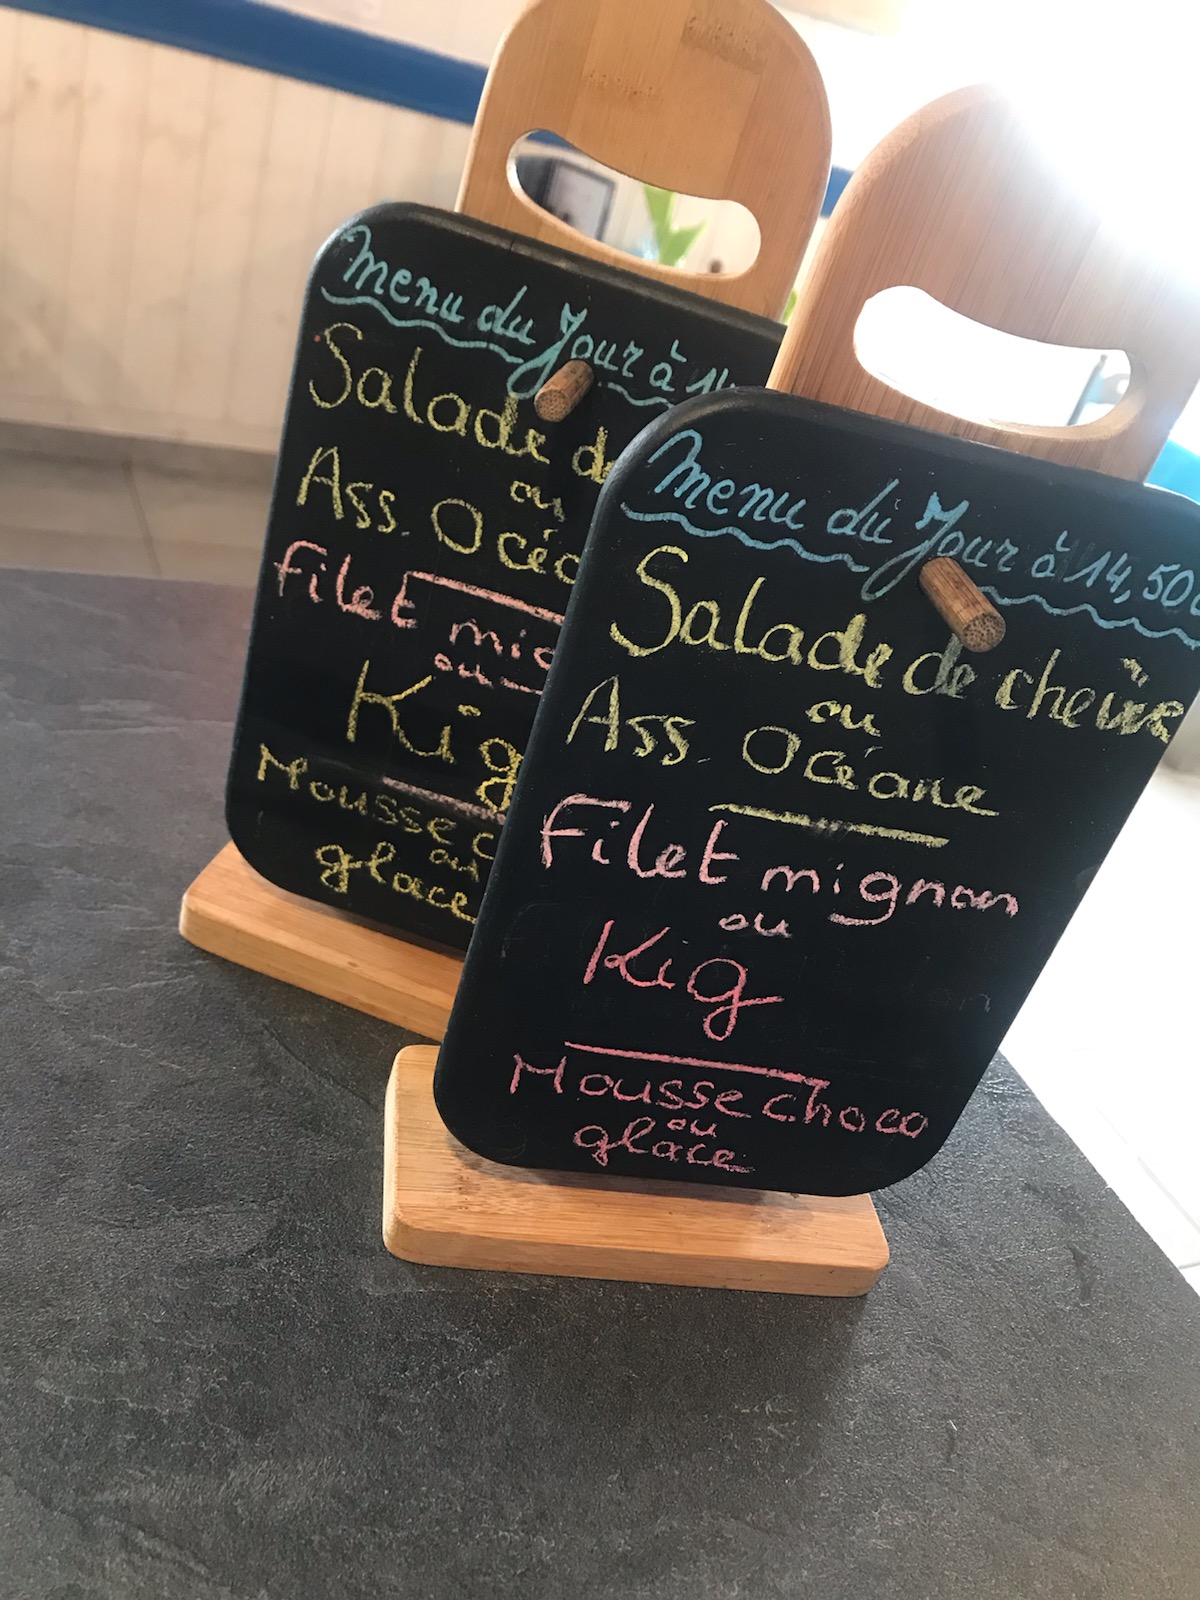 Menu du Jour à 14
Salade de
ou
Ass. Océa
Filet mig
ou
Kig
Mousse c
ou
glace
Menu du Jour à 14,50€
Salade de chèvre
ou
Ass. Océane
Filet mignon
ou
Kig
Mousse choco
ou
glace